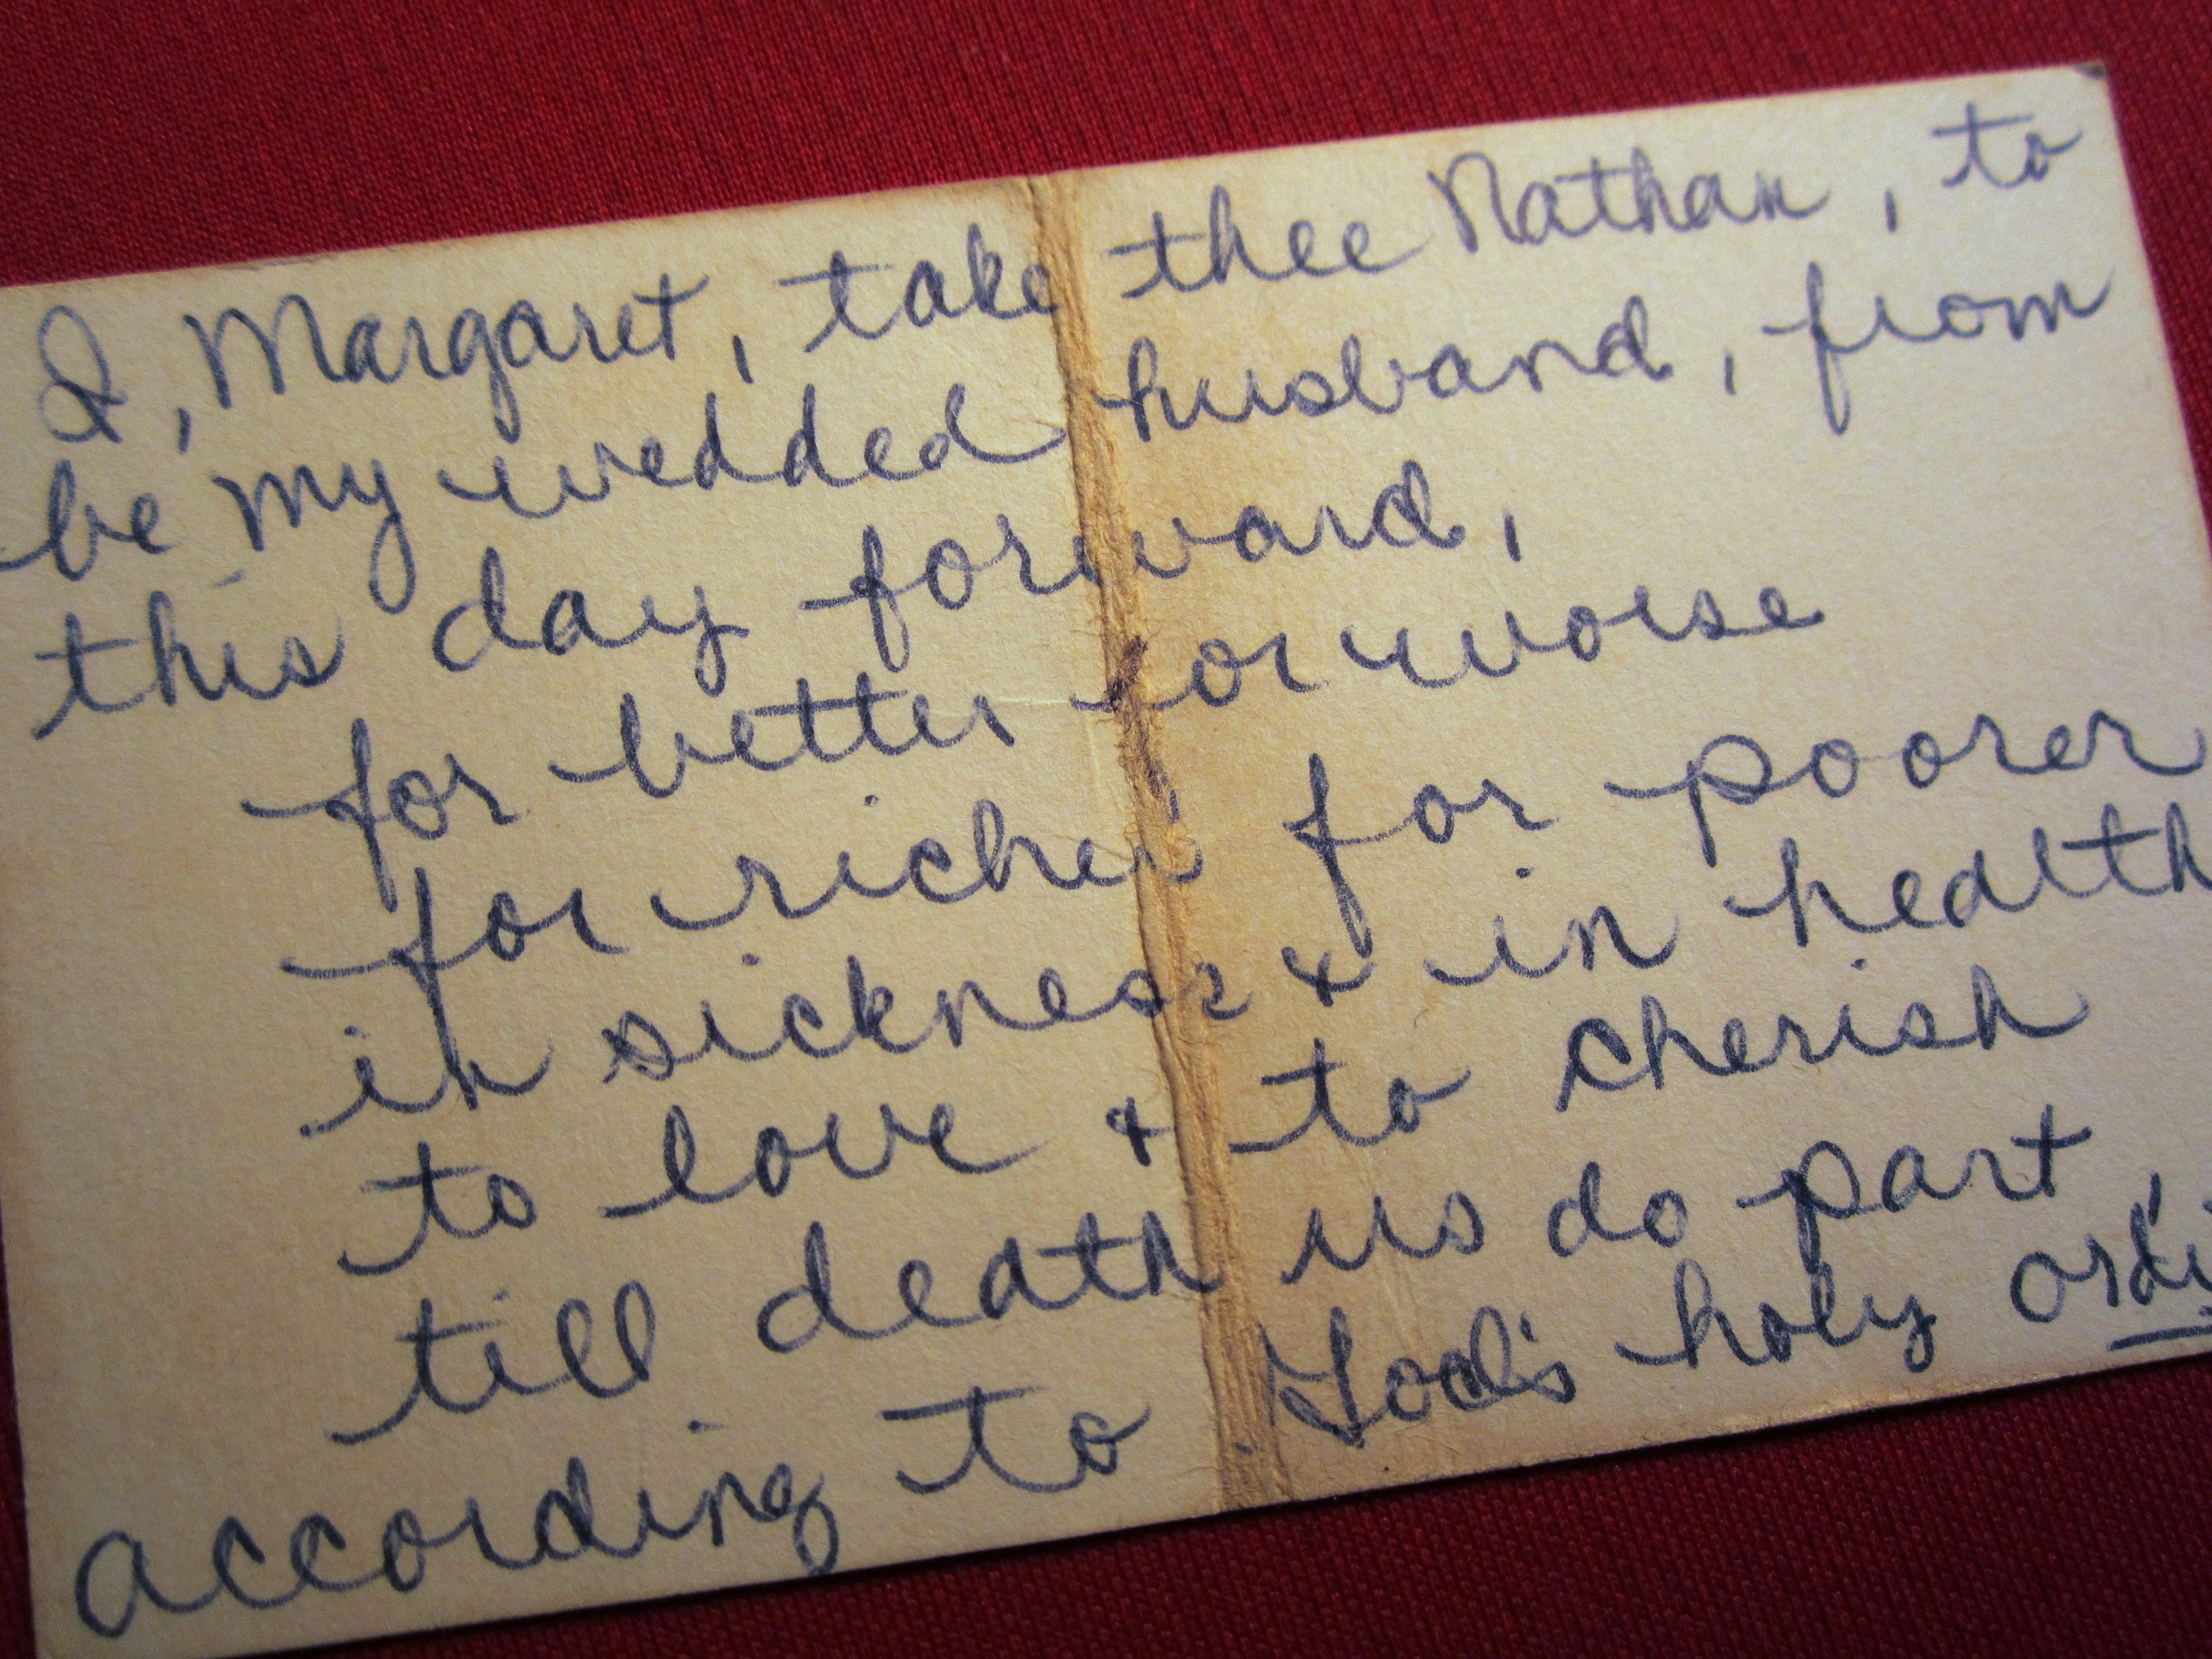 I, Margaret, take thee Nathan, to
be my wedded husband, from
this day forward,
for better for worse
for richer for poorer
in sickness & in health
to love & to cherish
till death us do part,
according to God's holy ordi